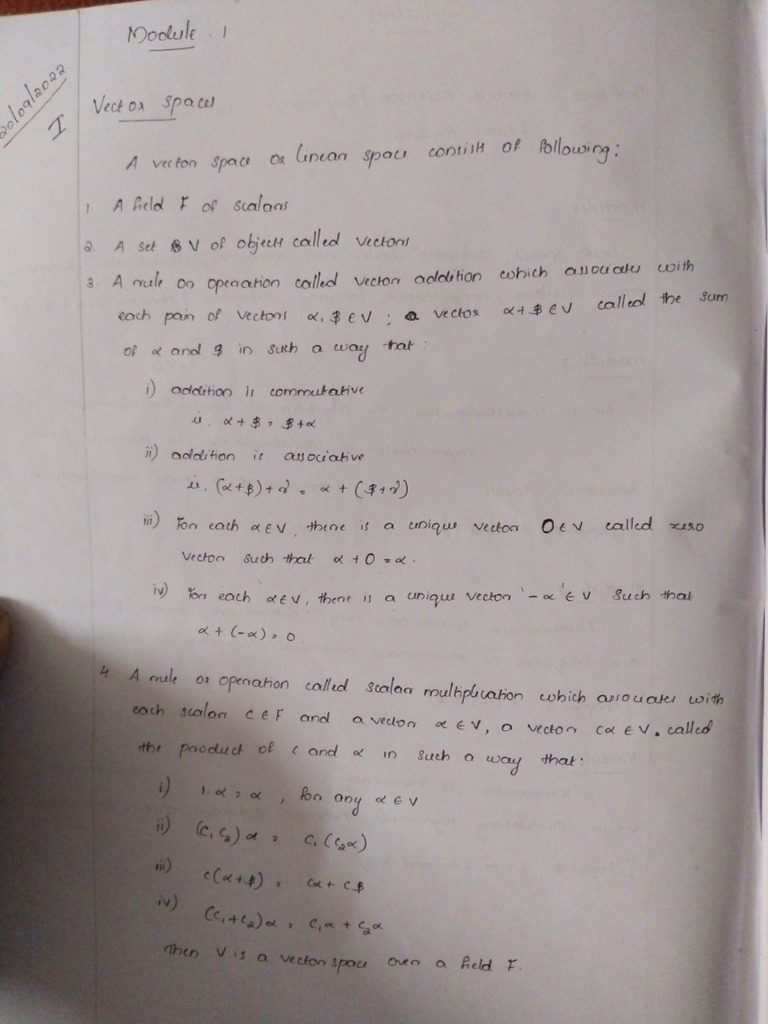 Module. 1
20/09/2022
I
Vector spaces
A vector space or linear space consists of following:
1. A field F of scalars
2. A set V of objects called vectors
3. A rule or operation called vector addition which associates with
each pair of vectors α, β ∈ V ; a vector α + β ∈ V called the sum
of α and β in such a way that :
i) addition is commutative
ie. α + β = β + α
ii) addition is associative
ie. (α + β) + γ = α + (β + γ)
iii) For each α ∈ V, there is a unique vector 0 ∈ V called zero
vector such that α + 0 = α.
iv) For each α ∈ V, there is a unique vector '-α' ∈ V such that
α + (-α) = 0
4 A rule or operation called scalar multiplication which associates with
each scalar c ∈ F and a vector α ∈ V, a vector cα ∈ V. called
the product of c and α in such a way that:
i) 1·α = α , for any α ∈ V
ii) (c₁ c₂) α = c₁ (c₂ α)
iii) c(α + β) = cα + cβ
iv) (c₁ + c₂) α = c₁ α + c₂ α
Then V is a vector space over a field F.